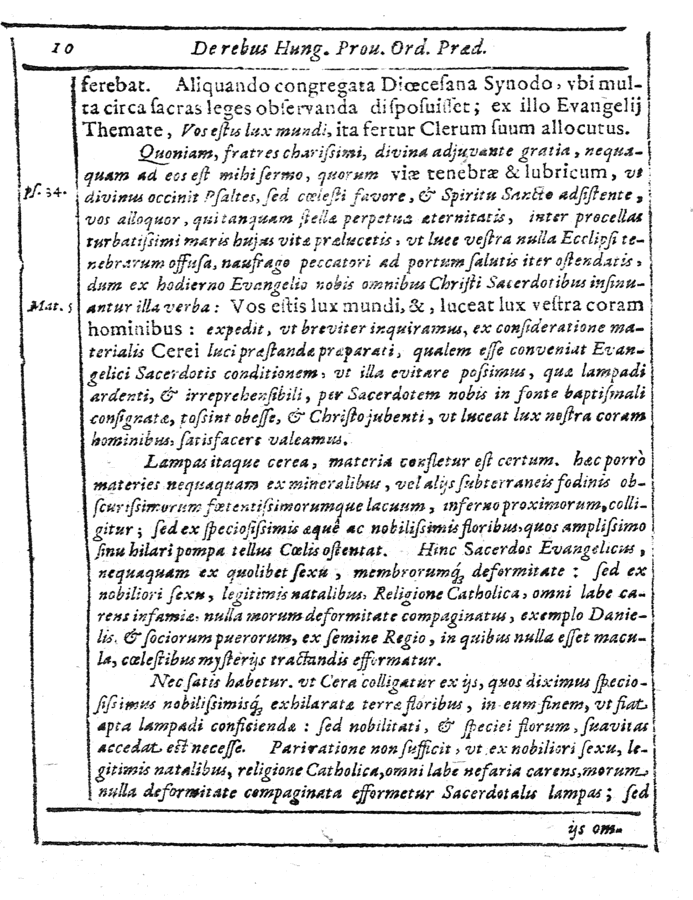 10 De rebus Hung. Prou. Ord. Præd.
ferebat. Aliquando congregata Diœceſana Synodo, vbi mul-
ta circa ſacras leges obſervanda diſpoſuiſſet; ex illo Evangelij
Themate, Vos eſtis lux mundi, ita fertur Clerum ſuum allocutus.
Quoniam, fratres chariſſimi, divina adjuvante gratia, nequa-
quam ad eos eſt mihi ſermo, quorum viæ tenebræ & lubricum, vt
Pſ. 34. divinus occinit Pſaltes, ſed cœleſti favore, & Spiritu Sancto adſiſtente,
vos alloquor, qui tanquam ſtellæ perpetuæ æternitatis, inter procellas
turbatiſſimi maris hujus vitæ prælucetis, vt luce veſtra nulla Ecclipſi te-
nebrarum offuſa, naufrago peccatori ad portum ſalutis iter oſtendatis,
dum ex hodierno Evangelio nobis omnibus Chriſti Sacerdotibus inſinu-
Mat. 5 antur illa verba: Vos eſtis lux mundi, &, luceat lux veſtra coram
hominibus: expedit, vt breviter inquiramus, ex conſideratione ma-
terialis Cerei luci præſtandæ præparati, qualem eſſe conveniat Evan-
gelici Sacerdotis conditionem, vt illa evitare poſſimus, quæ lampadi
ardenti, & irreprehenſibili, per Sacerdotem nobis in fonte baptiſmali
conſignatæ, poſſint obeſſe, & Chriſto jubenti, vt luceat lux noſtra coram
hominibus, ſatisfacere valeamus.
Lampas itaque cerea, materia confletur eſt certum. hæc porrò
materies nequaquam ex mineralibus, vel alijs ſubterraneis fodinis ob-
ſcuriſſimorum fœtentiſſimorumque lacuum, inferno proximorum, colli-
gitur; ſed ex ſpecioſiſſimis æquè ac nobiliſſimis floribus, quos ampliſſimo
ſinu hilari pompa tellus Cœlis oſtentat. Hinc Sacerdos Evangelicus,
nequaquam ex quolibet ſexu, membrorumq́; deformitate: ſed ex
nobiliori ſexu, legitimis natalibus, Religione Catholica, omni labe ca-
rens infamiæ, nulla morum deformitate compaginatus, exemplo Danie-
lis, & ſociorum puerorum, ex ſemine Regio, in quibus nulla eſſet macu-
la, cœleſtibus myſterijs tractandis efformatur.
Nec ſatis habetur, vt Cera colligatur ex ijs, quos diximus ſpecio-
ſiſſimus nobiliſſimisq́; exhilaratæ terræ floribus, in eum finem, vt fiat
apta lampadi conficiendæ: ſed nobilitati, & ſpeciei florum, ſuavitas
accedat eſt neceſſe. Pari ratione non ſufficit, vt ex nobiliori ſexu, le-
gitimis natalibus, religione Catholica, omni labe nefaria carens, morum
nulla deformitate compaginata efformetur Sacerdotalis lampas; ſed
ijs om-